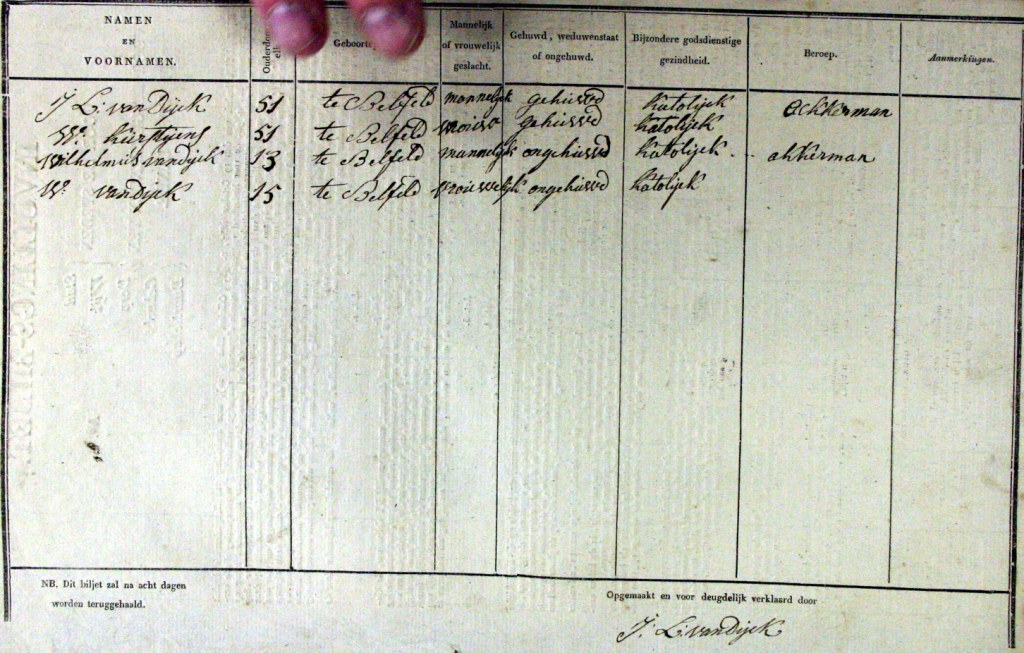 NAMEN
EN
VOORNAMEN.
Geboorte
Mannelijk
of vrouwelijk
geslacht.
Gehuwd, weduwenstaat
of ongehuwd.
Bijzondere godsdienstige
gezindheid.
Beroep.
Aanmerkingen.
J L: van Dijck 51 te Belfeld mannelijk gehuwd katolijck ackkerman
51 te Belfeld gehuwd katolijck
Wilhelmus van dijck 13 te Belfeld mannelijk ongehuwd katolijck akkerman
van dijck 15 te Belfeld ongehuwd katolijck
NB. Dit biljet zal na acht dagen
worden teruggehaald.
Opgemaakt en voor deugdelijk verklaard door
J: L: van Dijck